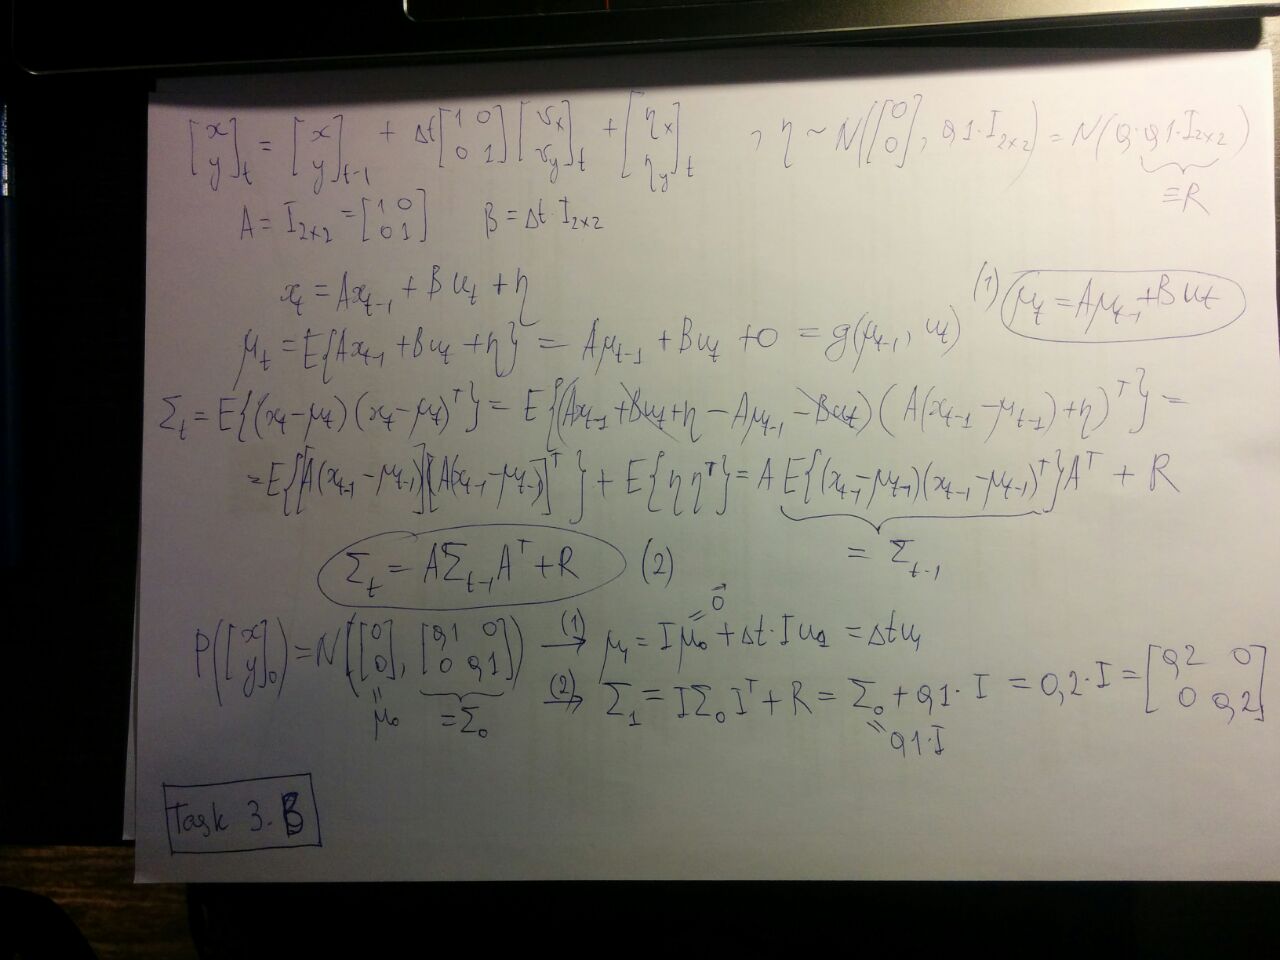 [x y]_t = [x y]_{t-1} + Δt [1 0; 0 1] [v_x v_y]_t + [η_x η_y]_t , η ~ N([0 0], 0,1·I_{2×2}) = N(0, 0,1·I_{2×2})
≡R
A = I_{2×2} = [1 0; 0 1] B = Δt·I_{2×2}
x_t = Ax_{t-1} + Bu_t + η
(1) μ_t = Aμ_{t-1} + Bu_t
μ_t = E{Ax_{t-1} + Bu_t + η} = Aμ_{t-1} + Bu_t + 0 = g(μ_{t-1}, u_t)
Σ_t = E{(x_t - μ_t)(x_t - μ_t)^T} = E{(Ax_{t-1} + Bu_t + η - Aμ_{t-1} - Bu_t)(A(x_{t-1} - μ_{t-1}) + η)^T} =
= E{[A(x_{t-1} - μ_{t-1})][A(x_{t-1} - μ_{t-1})]^T} + E{ηη^T} = A E{(x_{t-1} - μ_{t-1})(x_{t-1} - μ_{t-1})^T}A^T + R
= Σ_{t-1}
Σ_t = AΣ_{t-1}A^T + R (2)
P([x y]_0) = N([0 0], [0,1 0; 0 0,1]) →(1) μ_1 = Iμ_0 + Δt·Iu_1 = Δtu_1
= 0⃗
= μ_0 = Σ_0
→(2) Σ_1 = IΣ_0I^T + R = Σ_0 + 0,1·I = 0,2·I = [0,2 0; 0 0,2]
= 0,1·I
Task 3.B